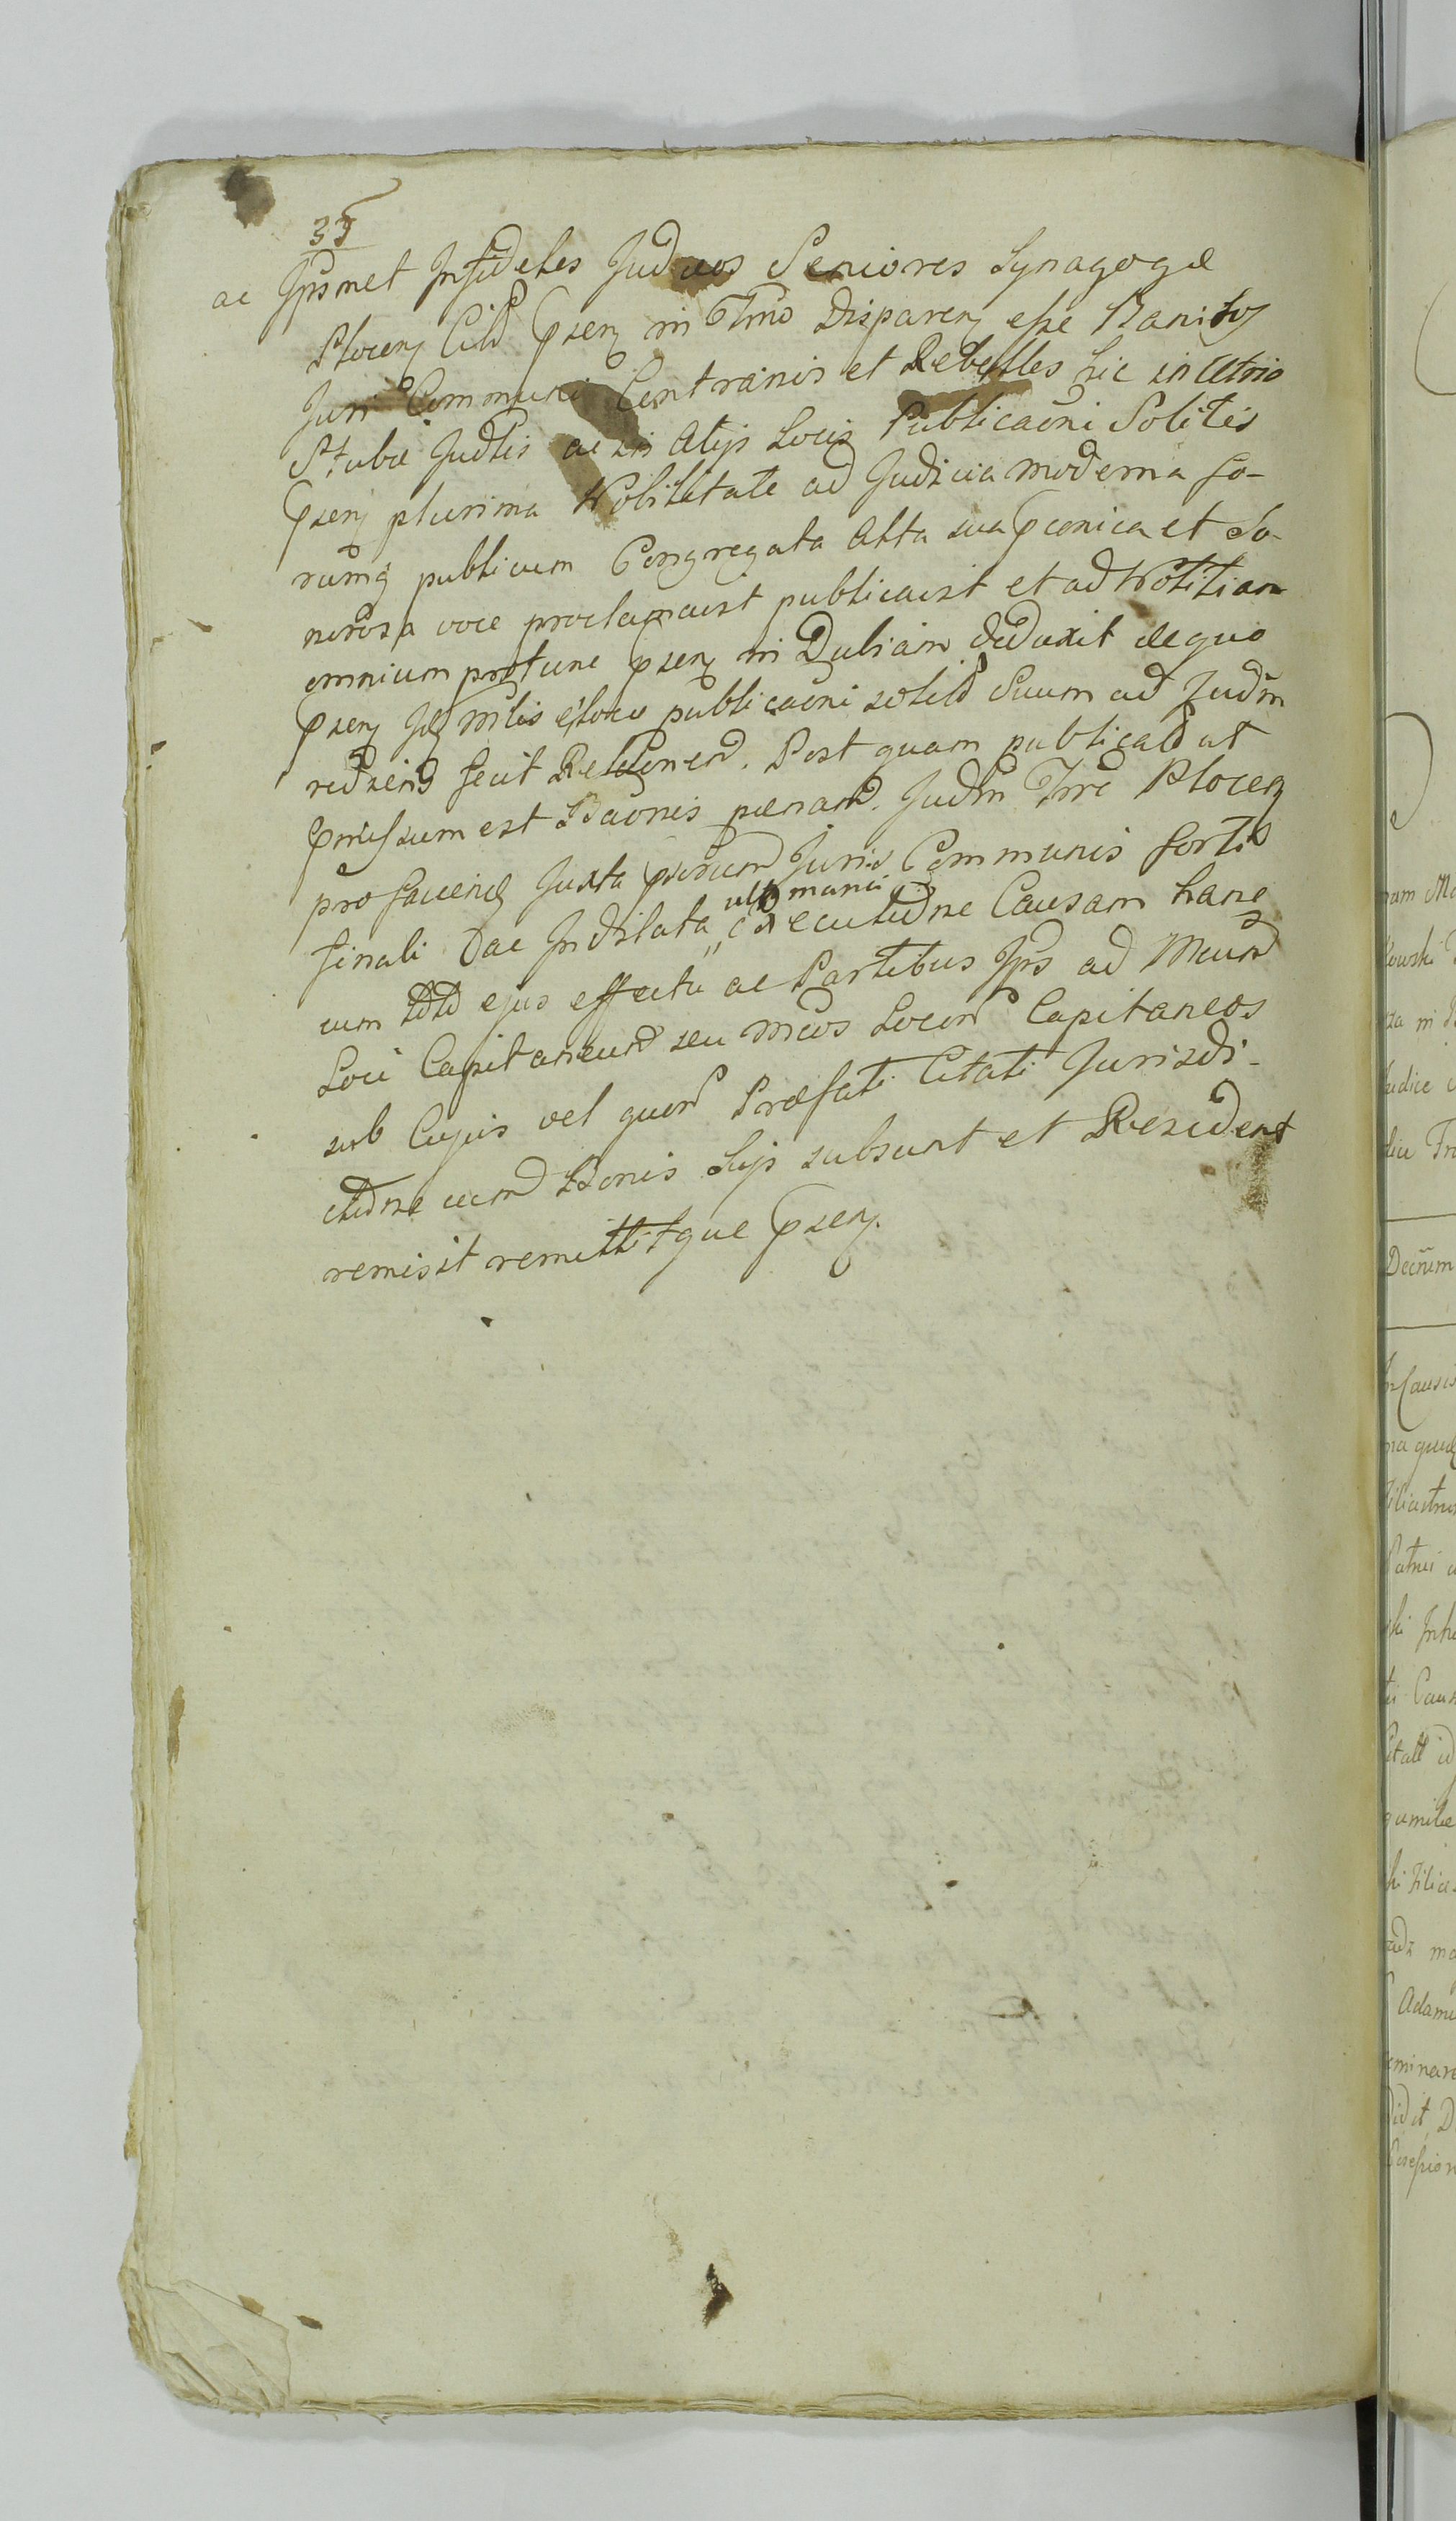 35
ac Ipsmet Infideles Judaeos Seniores Synagogae
Plocen Citd psen in Tmo Disparen esse Banitos
Juri Communi Contrarios et Rebelles hic in Atrio
Stubae Judlis ac in Alijs Locis Publicaoni Solitis
psen plurima Nobilitate ad Judicia moderna fo-
rumq publicum Congregata Alta sua pconica et So-
norosa voce proclamavit publicavit et ad Notitiam
omnium protunc psen in Dubiam deduxit de quo
psen Je mlis eloco publicaoni solito Suum ad Judm
rediens fecit Relaonem. Post quam publicatd ut
pmissum est Baonis paenam. Judm Trre Plocen
pro faciend Juxta psum Juris Communis forti
finali Dac Indilata ultimaria executione Causam hanc
cum toto ejus effectu ac Partibus Jps ad Meum
Loci Capitaneum seu meos Locor Capitaneos
sub Cujus vel quor Praefati Citati Jurisdi-
ctione cum Bonis Suis subsunt et Resident
remisit remittitque psen.
Decrum
Adam